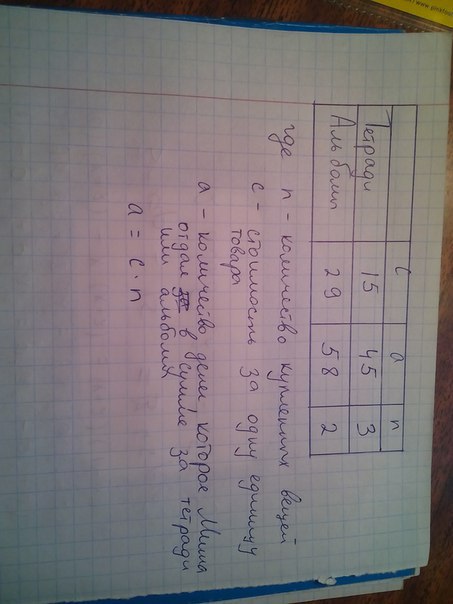 c a n
Тетради 15 45 3
Альбомы 29 58 2
где n - количество купленных вещей
c - стоимость за одну единицу
товара
a - количество денег, которое Миша
отдал в сумме за тетради
или альбомы
a = c · n